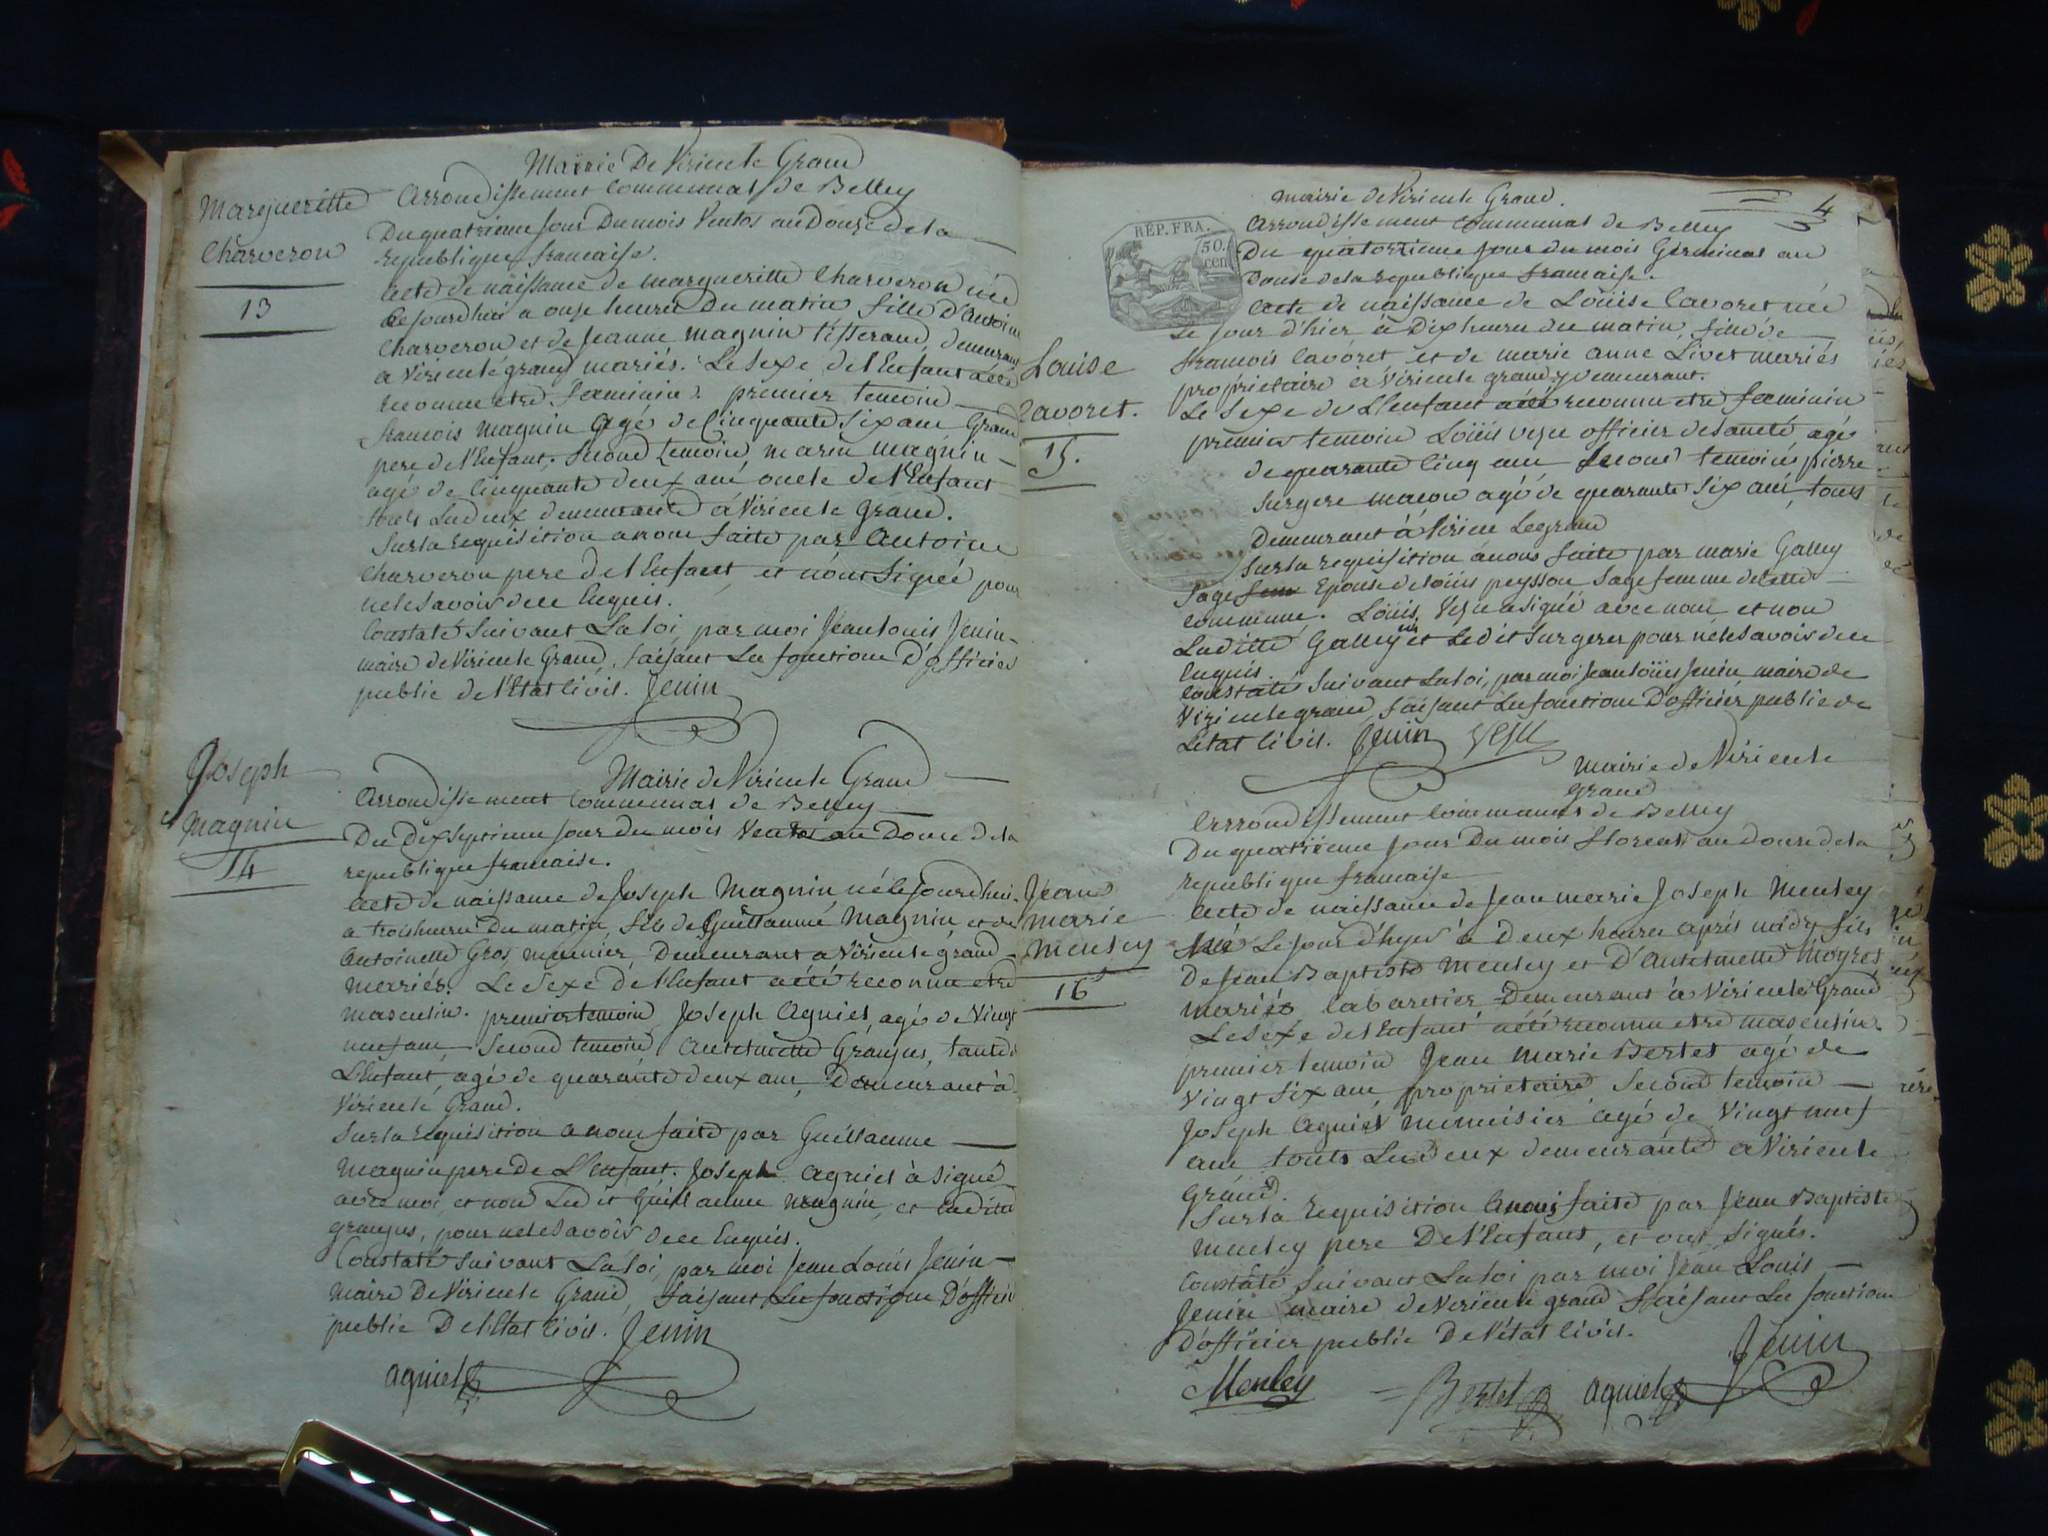 Mairie De Virieu le Grand
Arrondissement Communal de Belley
Margueritte
Charveron
13
Du quatrieme jour Du mois Ventos an Douze de la
republique francaise.
acte de naissance de margueritte Charveron née
ce jourdhui a onze heures Du matin fille D'antoine
Charveron et de jeanne magnin tisserand, demeurant
a Virieu le grand mariés. Le sexe de l'Enfant a été
reconnu etre feminin. premier temoin
francois magnin agé de Cinquante six ans Grand
pere de l'Enfant, second temoin, marin magnin
agé de Cinquante deux ans oncle de l'Enfant
touts Les deux demeurants à Virieu le Grand.
Sur la requisition a nous faite par Antoine
Charveron pere de l'Enfant et n'ont signée pour
ne le savoir de ce Enquis.
Constaté suivant La loi, par moi Jean Louis Jenin
maire de Virieu le Grand, faisant Les fonctions D'officier
public de l'Etat Civil. Jenin
Joseph
Magnin
14
Mairie de Virieu le Grand
Arrondissement Communal de Belley
Du Dix septieme jour Du mois Ventos an Douze de la
republique francaise.
acte de naissance de Joseph Magnin, né le jourdhui
a trois heures Du matin, fils de Guillaume Magnin, et de
Antoinette Gros, meunier, Demeurant a Virieu le grand
mariés. Le sexe de l'Enfant a été reconnu etre
masculin. premier temoin Joseph Agniel, agé de Vingt
neuf ans, second temoin Antelmette Granjus, tante de
L'Enfant, agé de quarante deux ans, Demeurant à
Virieu le Grand.
Sur la requisition a nous faite par Guillaume
Magnin pere de L'Enfant. Joseph Agniel à signé
avec moi, et non Le dit Guillaume magnin, et Ladite
granjus, pour ne le savoir de ce Enquis.
Constaté suivant La loi, par moi Jean Louis Jenin
Maire De Virieu le Grand, faisant Les fonctions D'officier
public De l'Etat Civil. Jenin
agniel
4
REP. FRA.
50.
cen
mairie de Virieu le Grand.
Arrondissement Communal de Belley
Du quatorzieme jour du mois Germinal an
Douse de la republique francaise.
Louise
Lavoret.
15.
acte de naissance de Loüise Lavoret née
le jour d'hier à Dix heures du matin, fille de
francois Lavoret et de marie anne Livet mariés
proprietaire à Virieu le grand y demeurant.
Le sexe de L'Enfant a été reconnu etre feminin
premier temoin Loüis vesu officier de santé, agé
de quarante Cinq ans second temoins pierre
surgere macon agé de quarante six ans, touts
Demeurant à Virieu Le grand
Sur la requisition a nous faite par marie Galley
Sage fem Epouse de loüis peysson sage femme de cette
commune. Loüis, Vesu a signée avec nous et non
Ladite Galley et Ledit Surgeres pour ne le savoir de ce
Enquis.
Constaté suivant La loi, par moi Jean loüis Jenin maire de
Virieu le grand, faisant Les fonctions D'officier public de
L'etat Civil. Jenin vesu
mairie de Virieu le
Grand
Arrondissement Communal de Belley
Du quatrieme jour Du mois floreal an Douze de la
republique francaise
Jean
Marie
Menley
16
acte de naissance de Jean marie Joseph Menley
née Le jour d'hyer à Deux heures aprés midy fils
De Jean Baptiste Menley et D'Antelmette Moyret
mariés Cabaretier Demeurant à Virieu le Grand
Le sexe de l'Enfant a été reconnu etre masculin.
premier temoin Jean Marie Bertet agé de
Vingt six ans, proprietaire second temoin
Joseph Agniel menuisier agé de Vingt neuf
ans touts Les Deux demeurants a Virieu le
Grand.
Sur la requisition A nous faite par Jean Baptiste
Menley pere De l'Enfant, et ont signés.
Constaté suivant La loi par moi Jean Louis
Jenin maire de Virieu le grand faisant Les fonctions
D'officier public De l'état Civil.
Jenin
Menley Bertet agniel